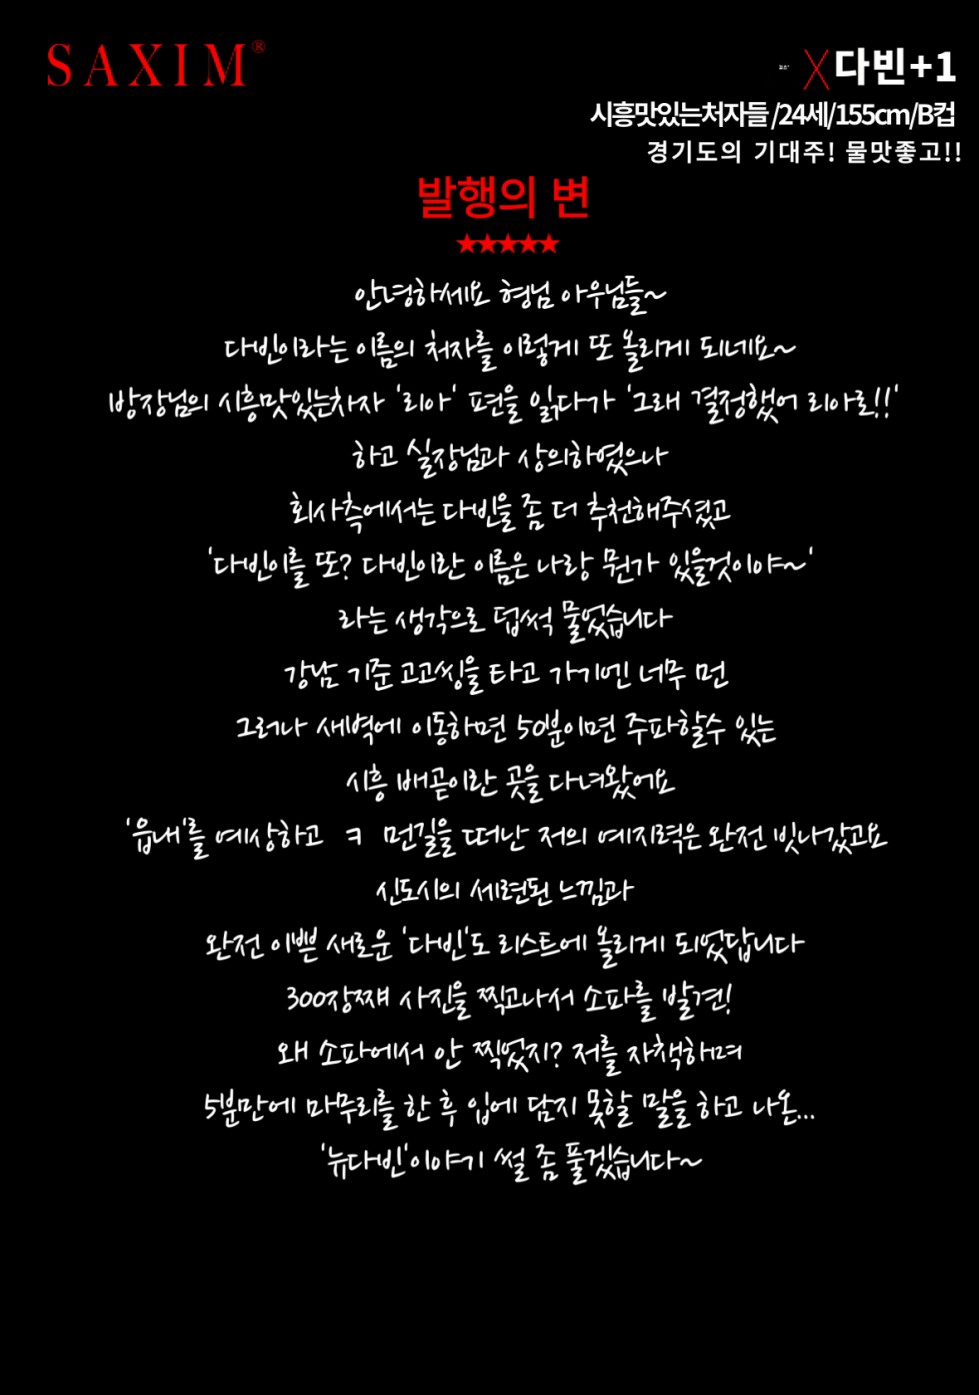 SAXIM®
X다빈+1
시흥맛있는처자들/24세/155cm/B컵
경기도의 기대주! 물맛좋고!!
발행의 변
★★★★★
안녕하세요 형님 아우님들~
다빈이라는 이름의 처자를 이렇게 또 올리게 되네요~
방장님의 시흥맛있는차자 '리아' 편을 읽다가 '그래 결정했어 리아로!!'
하고 실장님과 상의하였으나
회사측에서는 다빈을 좀 더 추천해주셨고
'다빈이를 또? 다빈이란 이름은 나랑 뭔가 있을것이야~'
라는 생각으로 덥썩 물었습니다
강남 기준 고고씽을 타고 가기엔 너무 먼
그러나 새벽에 이동하면 50분이면 주파할수 있는
시흥 배곧이란 곳을 다녀왔어요
'읍내'를 예상하고 ㅋ 먼길을 떠난 저의 예지력은 완전 빗나갔고요
신도시의 세련된 느낌과
완전 이쁜 새로운 '다빈'도 리스트에 올리게 되었답니다
300장째 사진을 찍고나서 소파를 발견!
왜 소파에서 안 찍었지? 저를 자책하며
5분만에 마무리를 한 후 입에 담지 못할 말을 하고 나온...
'뉴다빈'이야기 썰 좀 풀겠습니다~